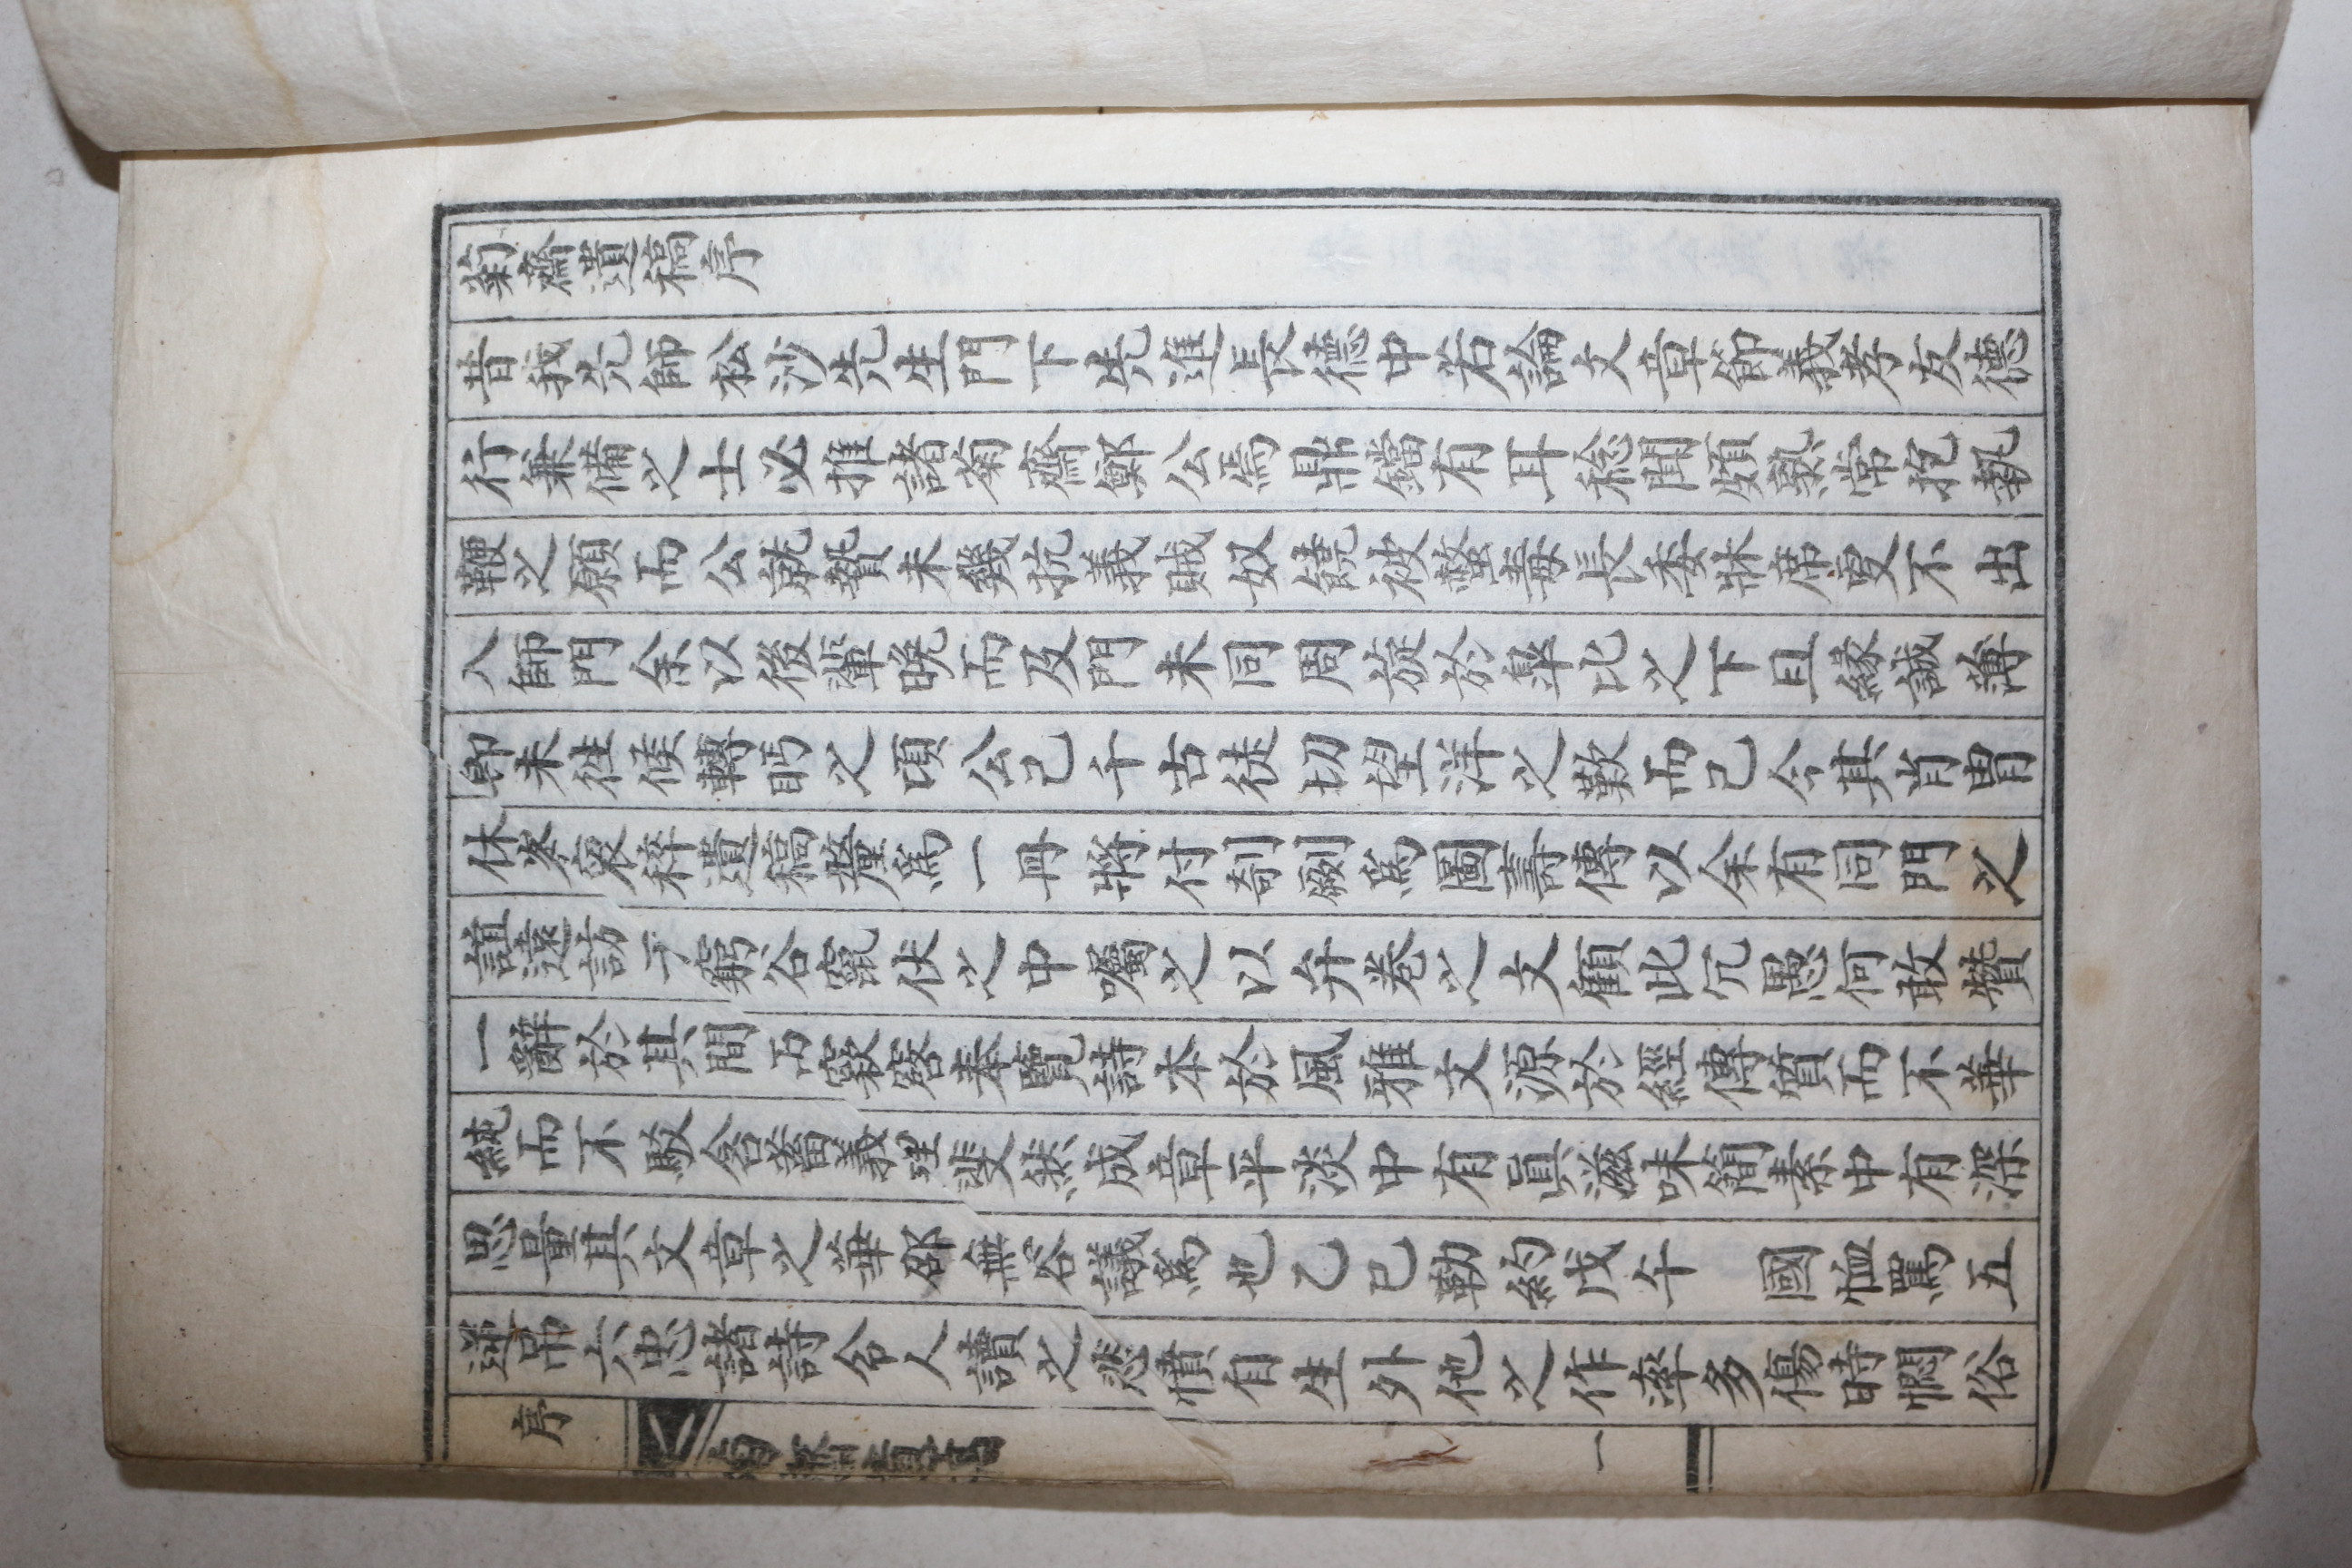 菊齋遺稿序
昔我先師松沙先生門下先進長德中若論文章節義孝友德
行兼備之士必推諸菊齋鄭公焉鼎鐺有耳稔聞頗熟常抱執
鞭之願而公就贄未幾抗義賊奴饒被螫毒長委牀席更不出
入師門余以後輩晩而及門未同周旋於皐比之下且緣誠薄
卽未徃候轉眄之頃公己千古徒切望洋之歎而己今其肖胄
休峯裒稡遺稿釐爲一冊將付剞劂爲圖壽傳以余有同門之
誼遠訪于窮谷竄伏之中囑之以弁卷之文顧此冗愚何敢贊
一辭於其間而窾窾奉覽詩本於風雅文源於經傳質而不華
純而不駁含蓄義理斐然成章平淡中有眞滋味簡素中有深
思量其文章之華郃無容議爲也乙巳勒約戊午　國恤罵五
逆吊六忠諸詩令人讀之悲憤自生外他之作率多傷時憫俗
序
菊齋遺稿
一